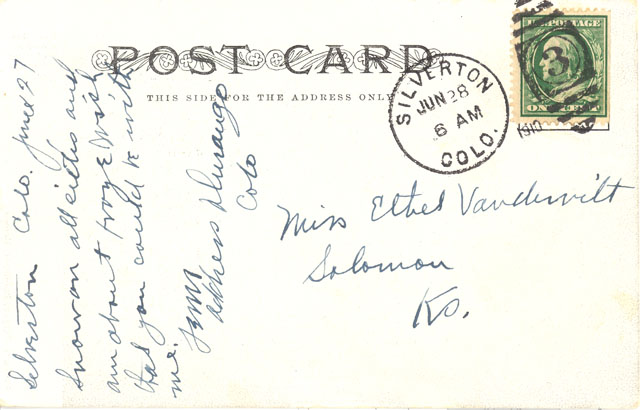 POST CARD
THIS SIDE FOR THE ADDRESS ONLY
SILVERTON
JUN 28
6 AM
COLO.
1910
U.S. POSTAGE
3
Miss Ethel Vandervilt
Solomon
Ks.
Silverton Colo. June 27
Snow on all sides and
am about froze Wish
that you could be with
me.
address Durango
Colo